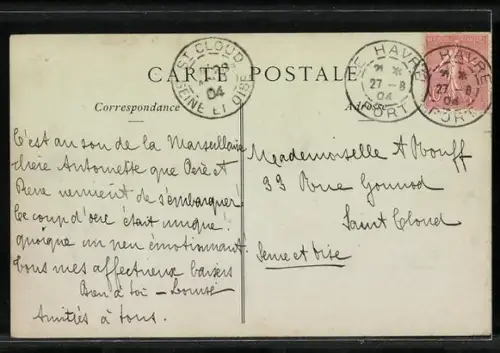 CARTE POSTALE
Correspondance
Adresse
ST CLOUD
04
SEINE ET OISE
LE HAVRE
27 - 8
04
PORT
LE HAVRE
27 - 8
04
PORT
C'est au son de la Marseillaise
chère Antoinette que Père et
viennent de s'embarquer!
Le coup d'oeil était unique!
quoique un peu émotionnant.
Tous mes affectueux baisers
Bien à toi - Louise
Amitiés à tous.
Mademoiselle A
33 Rue Gounod
Saint Cloud
Seine et Oise